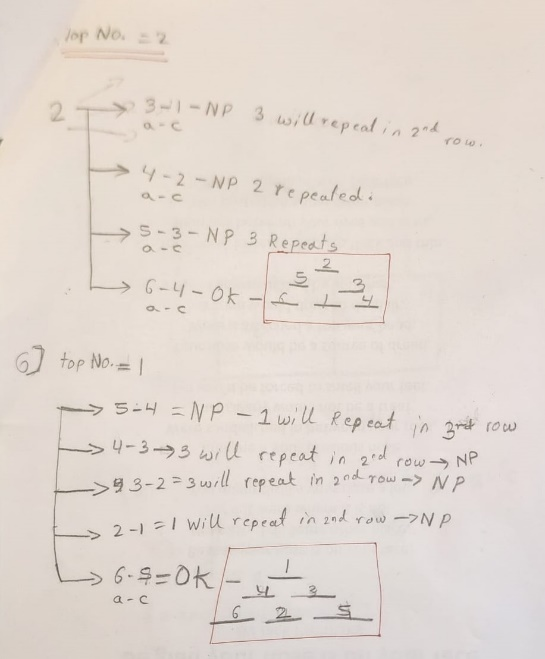 Top No. = 2
2 → 3-1-NP 3 will repeat in 2nd row.
a-c
→ 4-2-NP 2 repeated.
a-c
→ 5-3-NP 3 Repeats
a-c
→ 6-4-Ok-
a-c
2
5 3
6 1 4
6] top No. = 1
→ 5-4 = NP - 1 will Repeat in 3rd row
→ 4-3→3 will repeat in 2nd row→ NP
→ 3-2=3 will repeat in 2nd row-> NP
→ 2-1=1 Will repeat in 2nd row ->NP
→ 6-5=Ok -
a-c
1
4 3
6 2 5